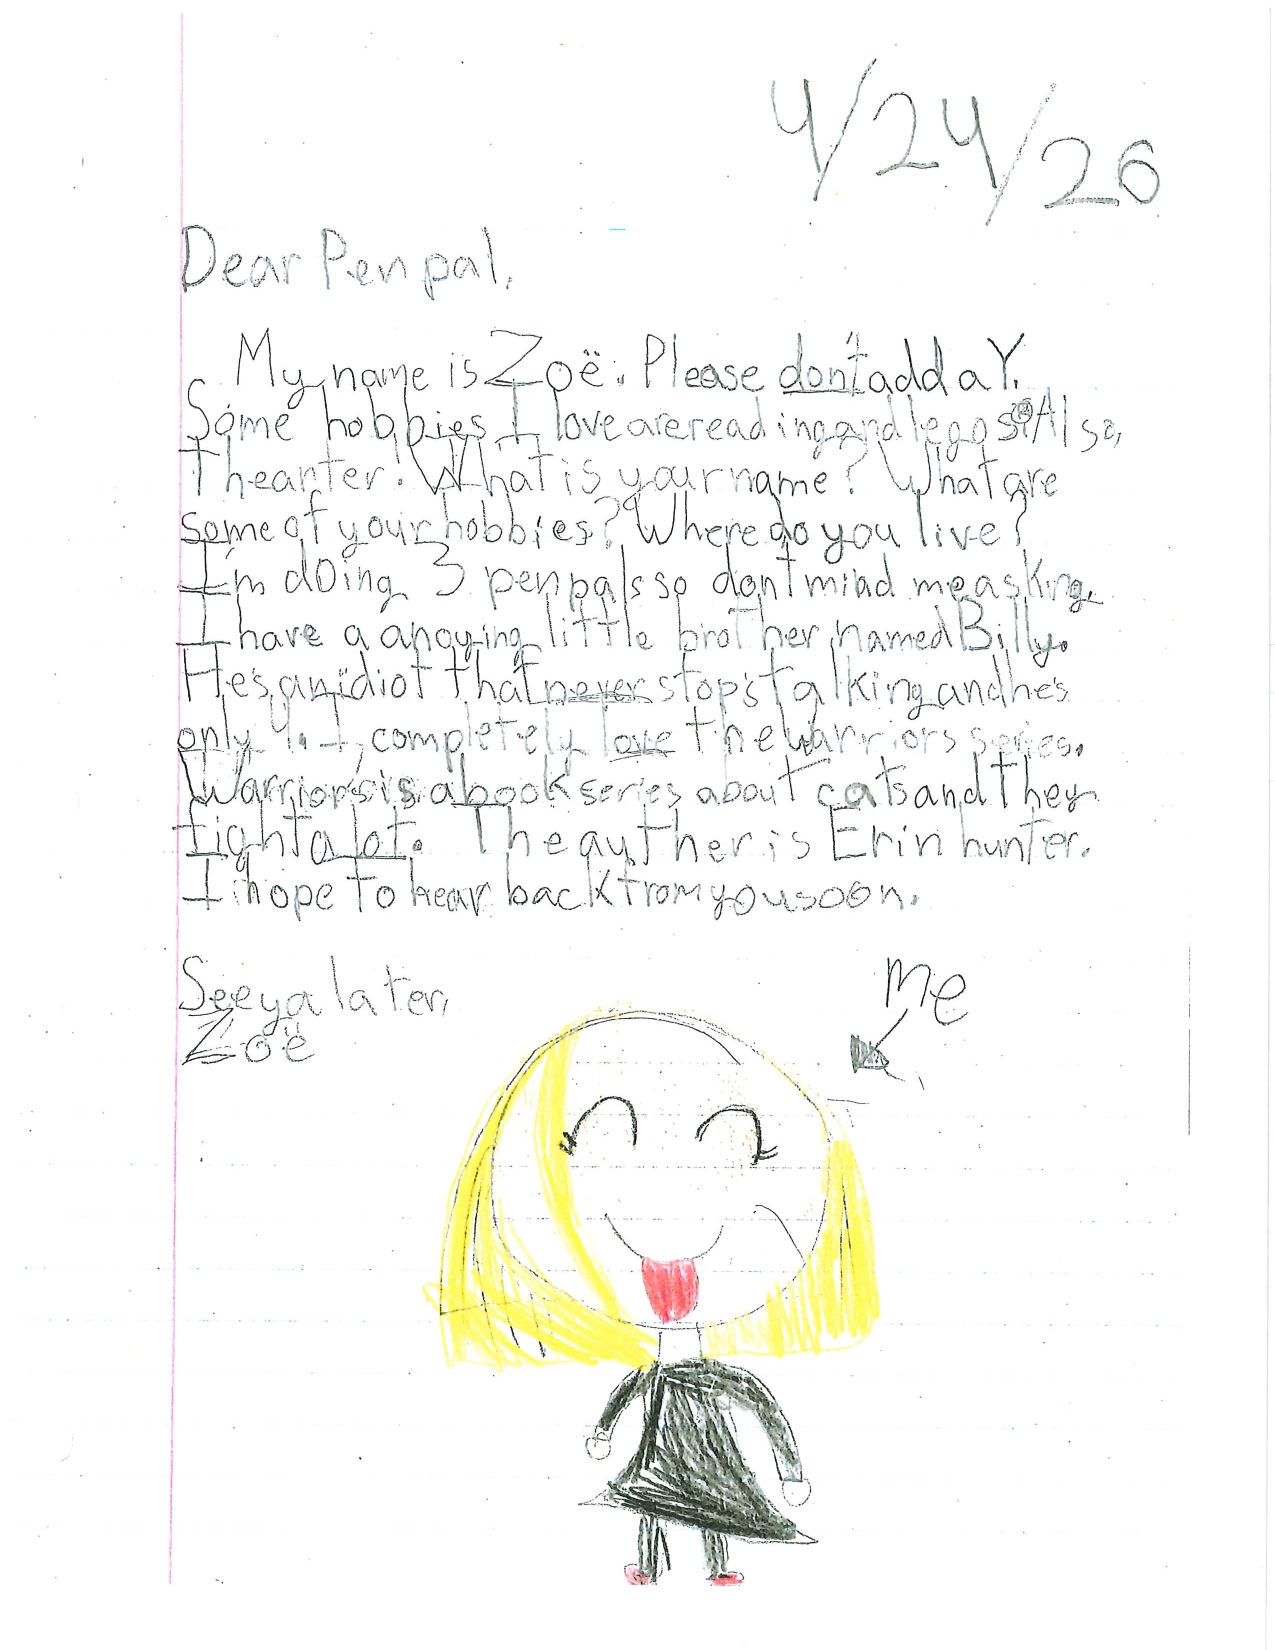 4/24/26
Dear Pen pal,
My name is Zoë. Please don't add a Y.
Some hobbies I love are reading and legos. Also,
Thearter. What is your name? What are
some of your hobbies? Where do you live?
I'm doing 3 penpals so don't mind me asking.
I have a anoying little brother named Billy.
He's an idiot that never stop's talking and he's
only 4. I completely love the Warriors series.
Warriors is a book series about cats and they
fight a lot. The auther is Erin hunter.
I hope to hear back from you soon.
See ya later,
Zoë
Me